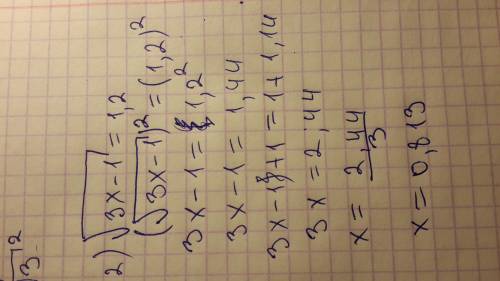 √3 ²
2) √3x-1 = 1,2
(√3x-1)² = (1,2)²
3x-1 = 1,2²
3x-1 = 1,44
3x-1+1 = 1+1,14
3x = 2,44
x = 2,44/3
x = 0,813